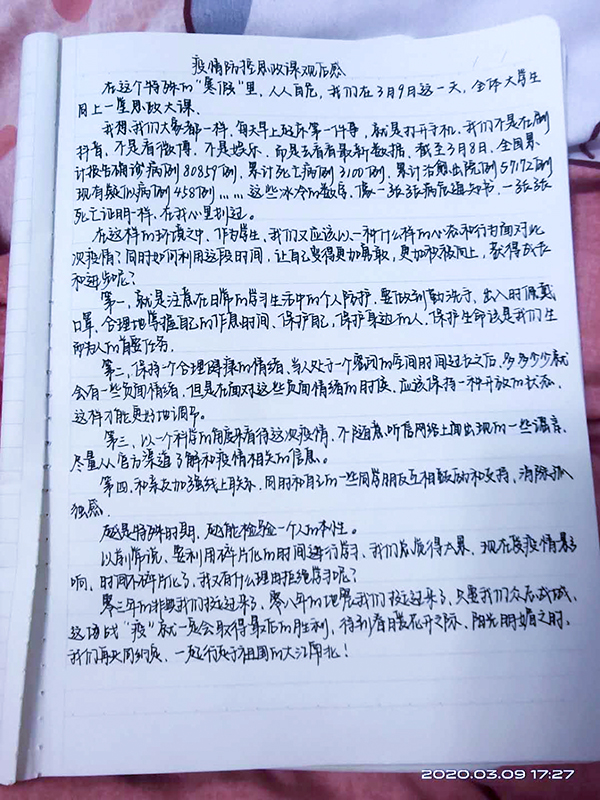 疫情防控思政课观后感
在这个特殊的“寒假”里，人人自危，我们在3月9日这一天，全体大学生
同上一堂思政大课。
我想我们大家都一样，每天早上起床第一件事，就是打开手机，我们不是在刷
抖音，不是看微博，不是娱乐，而是去看看最新数据。截至3月8日，全国累
计报告确诊病例80859例，累计死亡病例3100例，累计治愈出院例57172例
现有疑似病例458例……这些冰冷的数字，像一张张病危通知书，一张张
死亡证明一样，在我心里划过。
在这样的环境之中，作为学生，我们又应该以一种什么样的心态和行为面对此
次疫情？同时如何利用这段时间，让自己变得更加勇敢，更加积极向上，获得成长
和进步呢？
第一，就是注意在日常的学习生活中的个人防护，要做到勤洗手，出入时佩戴
口罩，合理地掌握自己的作息时间、保护自己，保护身边的人，保护生命该是我们生
而为人的首要任务。
第二，保持一个合理健康的情绪，当人处于一个密闭的空间时间过长之后，多多少少就
会有一些负面情绪，但是在面对这些负面情绪的时候，应该保持一种开放的状态，
这样才能更好地调节。
第三，以一个科学的角度来看待这次疫情，不随意听信网络上面出现的一些谣言，
尽量从官方渠道了解和疫情相关的信息。
第四，和亲友加强线上联系，同时和自己的一些同学朋友互相鼓励和支持，消除孤
独感。
越是特殊时期，越能检验一个人的本性。
以前常说，要利用碎片化的时间进行学习，我们总觉得太累，现在受疫情影
响，时间不碎片化了，我又有什么理由拒绝学习呢？
零三年的非典我们挺过来了，零八年的地震我们挺过来了，只要我们众志成城，
这场战“疫”就一定会取得最后的胜利，待到春暖花开之际、阳光明媚之时，
我们再共同约定，一起行走于祖国的大江南北！
2020.03.09 17:27